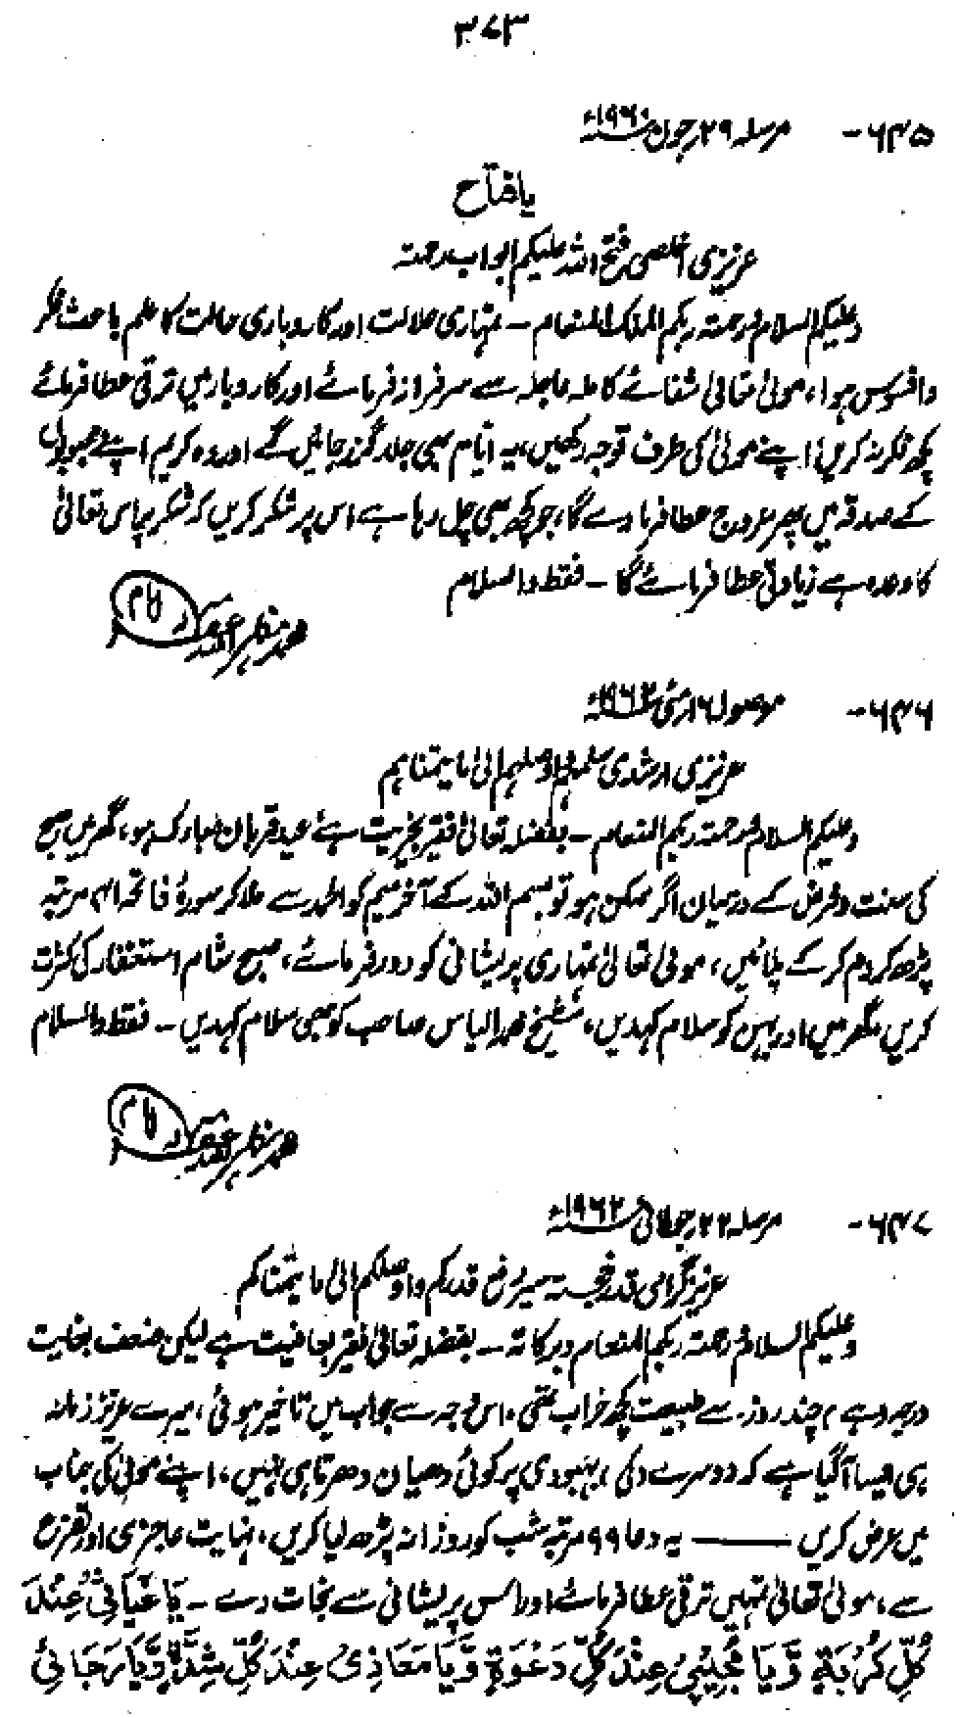 ۳۷۳
۶۴۵- مرسلہ ۲۹ر جون ۱۹۶۰ء
یافتاح
عزیزی اخلصی فتح اللہ علیکم ابواب رحمتہ
وعلیکم السلام ورحمتہ ربکم الملک المنعام – تمہاری علالت اور کاروباری حالت کا علم باعث فکر
وافسوس ہوا، مولیٰ تعالیٰ شفائے کاملہ عاجلہ سے سرفراز فرمائے اور کاروبار میں ترقی عطا فرمائے
کچھ فکر نہ کریں، اپنے مولیٰ کی طرف توجہ رکھیں، یہ ایام بھی جلد گزر جائیں گے اور وہ کریم اپنے حبیبوں
کے صدقہ میں پھر عروج عطا فرما دے گا، جو کچھ بھی چل رہا ہے اس پر شکر کریں کہ شکر پر اس تعالیٰ
کا وعدہ ہے زیادتی عطا فرمائے گا – فقط والسلام
محمد مظہر اللہ غفرلہ
۶۴۶- موصولہ ۱۶ر مئی ۱۹۶۲ء
عزیزی ارشدی سلمہم واوصلہم الیٰ ما یتمناہم
وعلیکم السلام ورحمتہ ربکم المنعام – بفضلہ تعالیٰ فقیر بخیریت ہے عید قربان مبارک ہو، گھر میں صبح
کی سنت وفرض کے درمیان اگر ممکن ہو تو بسم اللہ کے آخر میم کو الحمد سے ملا کر سورۂ فاتحہ ۴۱ مرتبہ
پڑھ کر دم کر کے پلائیں، مولیٰ تعالیٰ تمہاری پریشانی کو دور فرمائے، صبح شام استغفار کی کثرت
کریں، گھر میں اور بہن کو سلام کہدیں، شیخ محمد الیاس صاحب کو بھی سلام کہدیں – فقط والسلام
محمد مظہر اللہ غفرلہ
۶۴۷- مرسلہ ۲۲ر جولائی ۱۹۶۲ء
عزیز گرامی قدر خجستہ سیر رفع قدرکم واوصلکم الیٰ ما یتمناکم
وعلیکم السلام ورحمتہ ربکم المنعام وبرکاتہ – بفضلہ تعالیٰ فقیر بعافیت ہے لیکن ضعف بغایت
درجہ ہے، چند روز سے طبیعت کچھ خراب تھی، اس وجہ سے جواب میں تاخیر ہوئی، میرے عزیز زمانہ
ہی ایسا آگیا ہے کہ دوسرے کی بہبودی پر کوئی دھیان دھرتا ہی نہیں، اپنے مولیٰ کی جناب
میں عرض کریں —— یہ دعا ۹۹ مرتبہ شب کو روزانہ پڑھ لیا کریں، نہایت عاجزی اور تضرع
سے، مولیٰ تعالیٰ تمہیں ترقی عطا فرمائے اور اس پریشانی سے نجات دے – یَا غِیَاثِیْ عِنْدَ
کُلِّ کُرْبَةٍ وَّیَا مُجِیْبِیْ عِنْدَ کُلِّ دَعْوَةٍ وَّیَا مَعَاذِیْ عِنْدَ کُلِّ شِدَّةٍ وَّیَا رَجَائِیْ